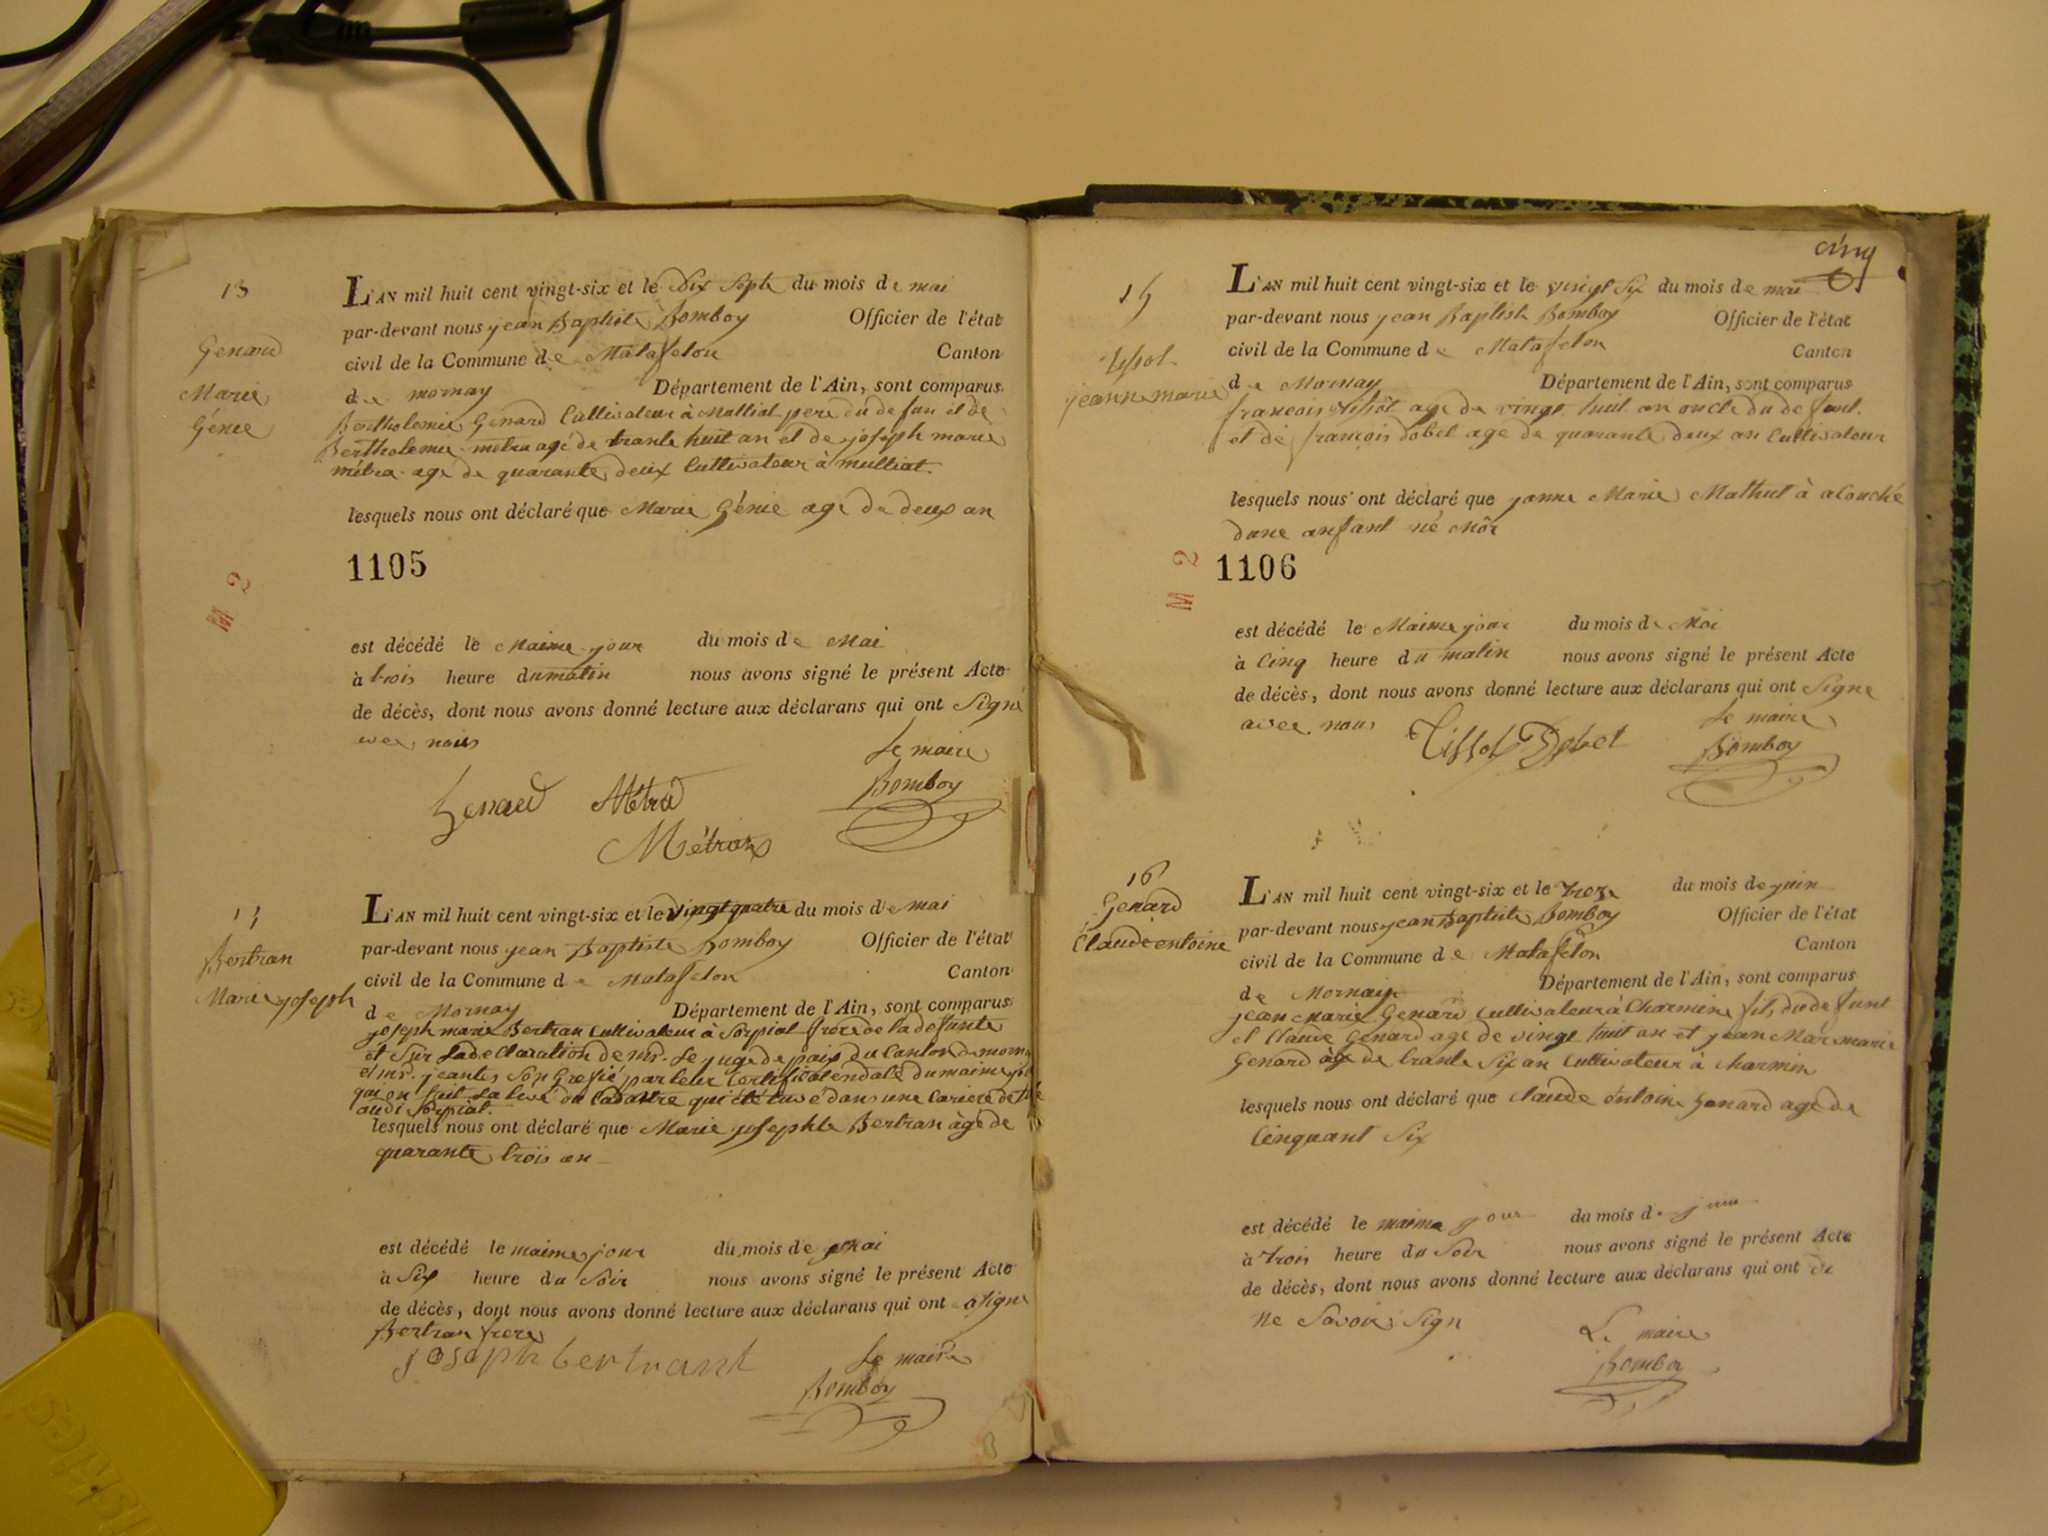 13
Genard
Marie
Génie
L'AN mil huit cent vingt-six et le Dix Septe du mois de mai
par-devant nous jean Baptiste Bomboy Officier de l'état
civil de la Commune de Matafelon Canton
de mornay Département de l'Ain, sont comparus
Bertholemie Génard Cultivateur à Mulliat pere du defun et de
Bertholemie metra agé de trante huit an et de joseph marie
métra age de quarante deux Cultivateur à mulliat.
lesquels nous ont déclaré que Marie Génie age de deux an
1105
M 2
est décédé le Maime jour du mois de Mai
à trois heure du matin nous avons signé le présent Acte
de décès, dont nous avons donné lecture aux déclarans qui ont Signé
avec nous
Le maire
Genard Métra Bomboy
Métraz
14
Bertran
Marie joseph
L'AN mil huit cent vingt-six et le vingt quatre du mois de mai
par-devant nous jean Baptiste Bomboy Officier de l'état
civil de la Commune de Matafelon Canton
de Mornay Département de l'Ain, sont comparus
joseph marie Bertran Cultivateur à Sorpiat frere de la defunte
et Sur La de Claration de mr. Le juge de paix du Canton de morn
et mr. jeantet Son Grefié par leur Certificat en date du maime jou
qui on fait La live du Cadavre qui été tuvé dans une Cariere de
audi Sorpiat.
lesquels nous ont déclaré que Marie josephte Bertran àgé de
quarante trois an
est décédé le maime jour du mois de Mai
à Six heure du Soir nous avons signé le présent Acte
de décès, dont nous avons donné lecture aux déclarans qui ont asigne
Bertran frere
joseph bertrant Le maire
Bomboy
cinq
15
tissot
jeanne marie
L'AN mil huit cent vingt-six et le vingt Six du mois de mai
par-devant nous jean Baptiste Bomboy Officier de l'état
civil de la Commune de Matafelon Canton
de Mornay Département de l'Ain, sont comparus
francois tissôt age de vingt huit an oncle du defunt
et de francois Dobet age de quarante deux an Cultivateur
lesquels nous ont déclaré que janne Marie Mathut à acouché
dune anfant né Môr
M 2
1106
est décédé le Maime jour du mois de Mai
à Cinq heure du matin nous avons signé le présent Acte
de décès, dont nous avons donné lecture aux déclarans qui ont Signe
avec nous Tissot Dobet Le maire
Bomboy
16
Genard
Claude entoine
L'AN mil huit cent vingt-six et le treze du mois de juin
par-devant nous jean Baptiste Bomboy Officier de l'état
civil de la Commune de Matafelon Canton
de Mornay Département de l'Ain, sont comparus
jean Marie Genard Cultivateur à Charmine fils du defunt
et Claude Genard age de vingt huit an et jean Mar marie
Genard àge de trante Six an Cultivateur à Charmin
lesquels nous ont déclaré que Claude éntoine Genard age de
Cinquant Six
est décédé le maime jour du mois de juin
à trois heure du Soir nous avons signé le présent Acte
de décès, dont nous avons donné lecture aux déclarans qui ont di
ne Savoir Sign
Le maire
Bomboy